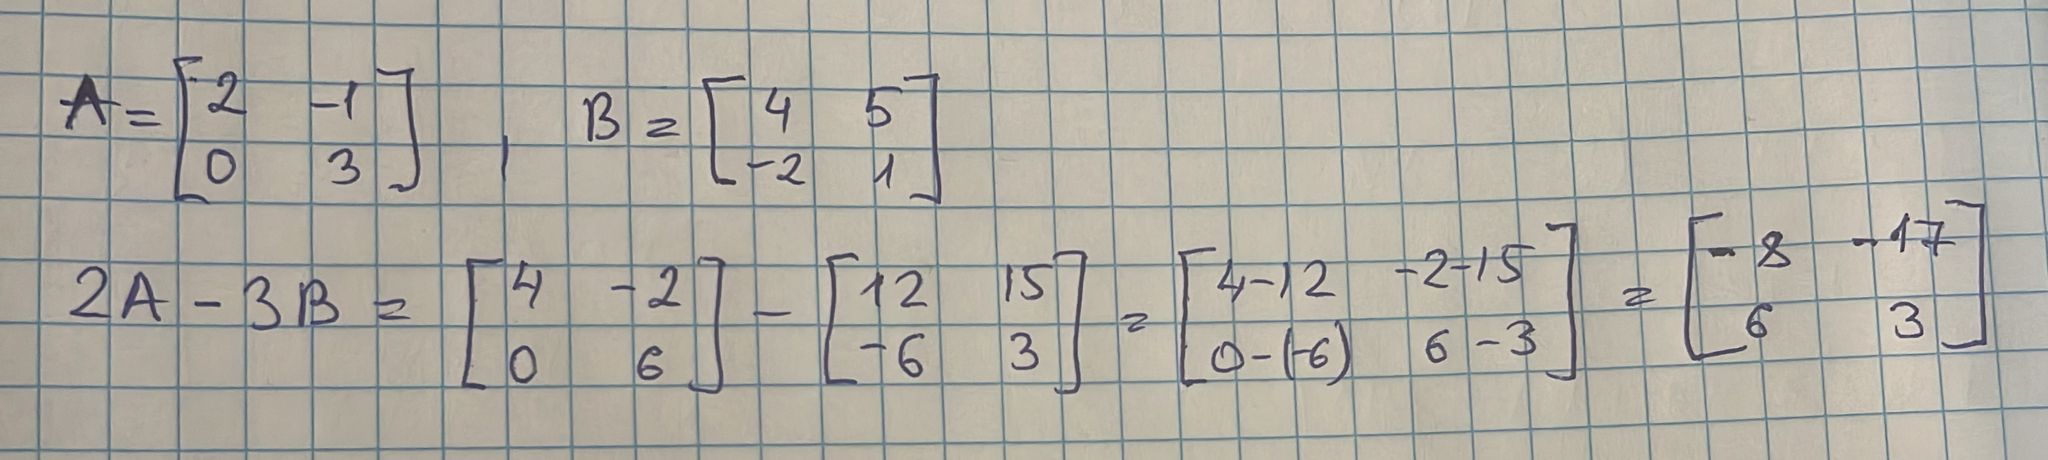 A = [2 -1; 0 3] , B = [4 5; -2 1]
2A - 3B = [4 -2; 0 6] - [12 15; -6 3] = [4-12 -2-15; 0-(-6) 6-3] = [-8 -17; 6 3]